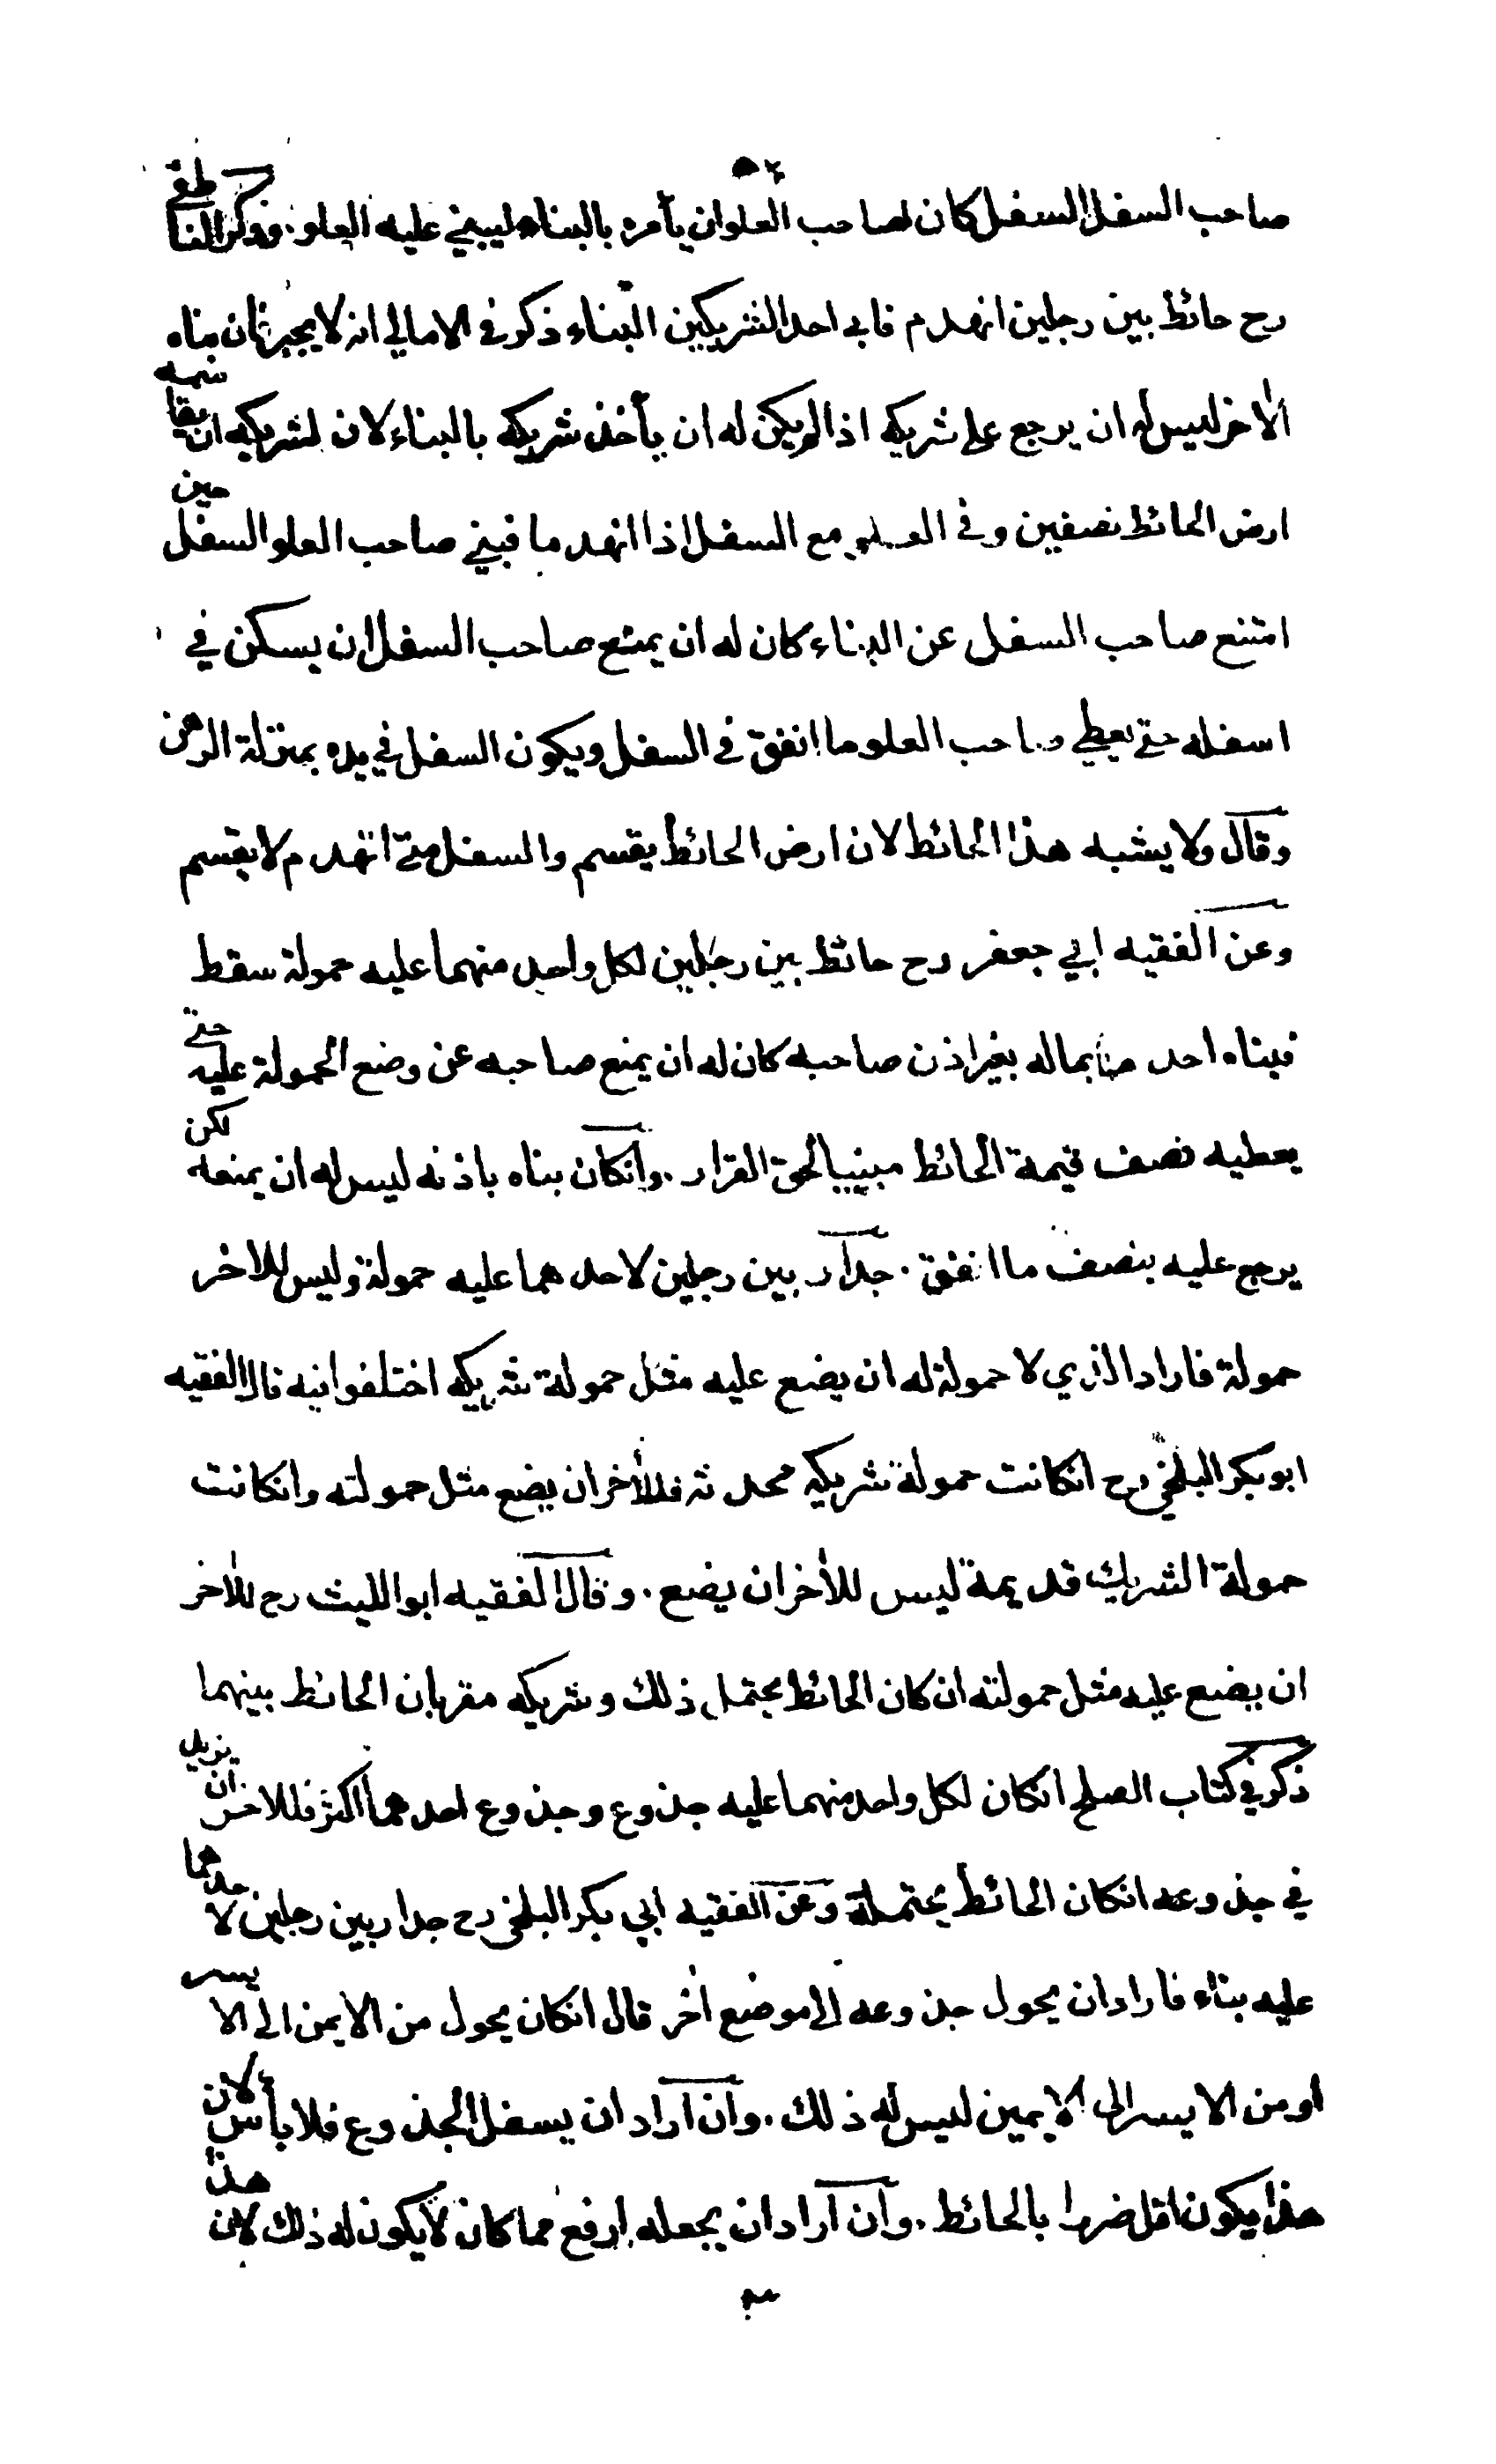 ٥٢
صاحب السفل السفل كان لصاحب العلو ان يأمره بالبناء ليبني عليه العلو. وذكر الناطفي
رح حائط بين رجلين انهدم فابى احد الشريكين البناء ذكر في الامالي انه لا يجبر فان بناه
الاٰخر ليس له ان يرجع على شريكه اذا لم يكن له ان يأخذ شريكه بالبناء لان لشريكه ان يقاسمه
ارض الحائط نصفين وفي العلو مع السفل اذا انهدما فبنى صاحب العلو السفل حين
امتنع صاحب السفل عن البناء كان له ان يمنع صاحب السفل ان يسكن في
اسفله حتى يعطي صاحب العلو ما انفق في السفل ويكون السفل في يده بمنزلة الرهن
وقال ولا يشبه هذا الحائط لان ارض الحائط يقسم والسفل متى انهدم لا يقسم
وعن الفقيه ابي جعفر رح حائط بين رجلين لكل واحد منهما عليه حمولة سقط
فبناه احدهما بماله بغير اذن صاحبه كان له ان يمنع صاحبه عن وضع الحمولة عليه حتى
يعطيه نصف قيمة الحائط مبنيا لحق القرار. وانكان بناه باذنه ليس له ان يمنعه لكن
يرجع عليه بنصف ما انفق. جدار بين رجلين لاحدهما عليه حمولة وليس للاخر
حمولة فاراد الذي لا حمولة له ان يضع عليه مثل حمولة شريكه اختلفوا فيه قال الفقيه
ابو بكر البلخي رح انكانت حمولة شريكه محدثة فللأخر ان يضع مثل حمولته وانكانت
حمولة الشريك قديمة ليس للأخر ان يضع. وقال الفقيه ابو الليث رح للاٰخر
ان يضع عليه مثل حمولته ان كان الحائط يحتمل ذلك وشريكه مقر بان الحائط بينهما
ذكر في كتاب الصلح انكان لكل واحد منهما عليه جذوع وجذوع احدهما اكثر فللاخر ان يزيد
في جذوعه انكان الحائط يحتمله وعن الفقيه ابي بكر البلخي رح جدار بين رجلين لاحدهما
عليه بناء فاراد ان يحول جذوعه الى موضع اٰخر قال انكان يحول من الايمن الى الايسر
او من الايسر الى الايمين ليس له ذلك. وان اراد ان يسفل الجذوع فلا بأس لان
هذا يكون اقل ضررا بالحائط. وان اراد ان يجعله ارفع مما كان لا يكون له ذلك لان هذا